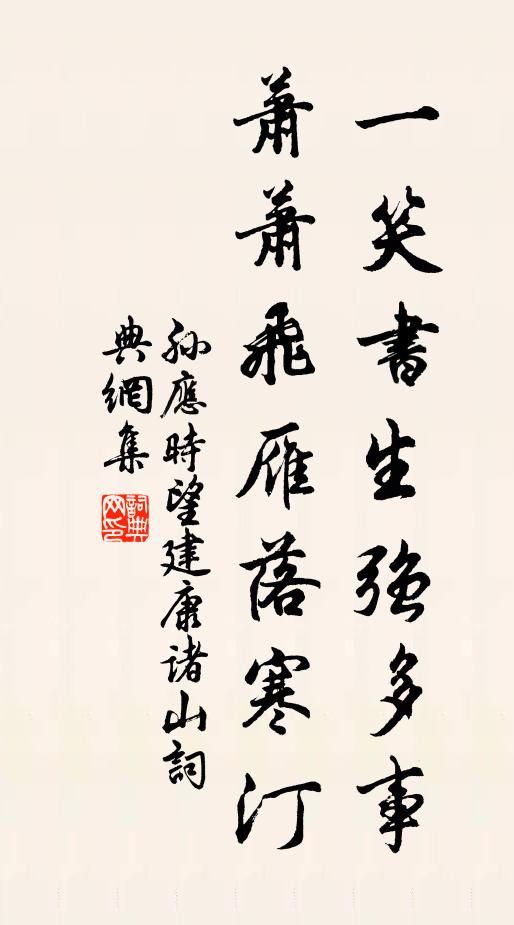 一笑書生強多事
蕭蕭飛雁落寒汀
孫應時望建康诸山詞
典網集
詞典網印